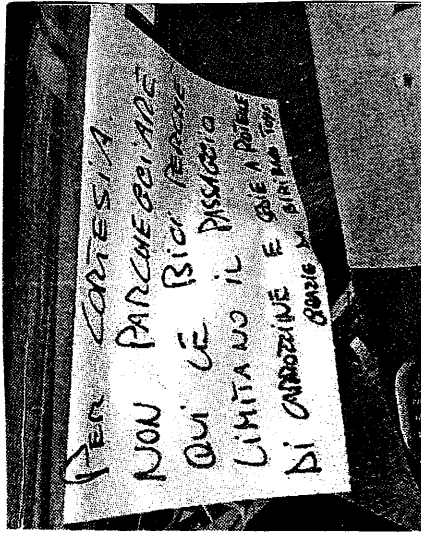 PER CORTESIA
NON PARCHEGGIARE
QUI LE BICI PERCHE
LIMITANO IL PASSAGGIO
DI CARROZZINE E SEDIE A ROTELLE
GRAZIE